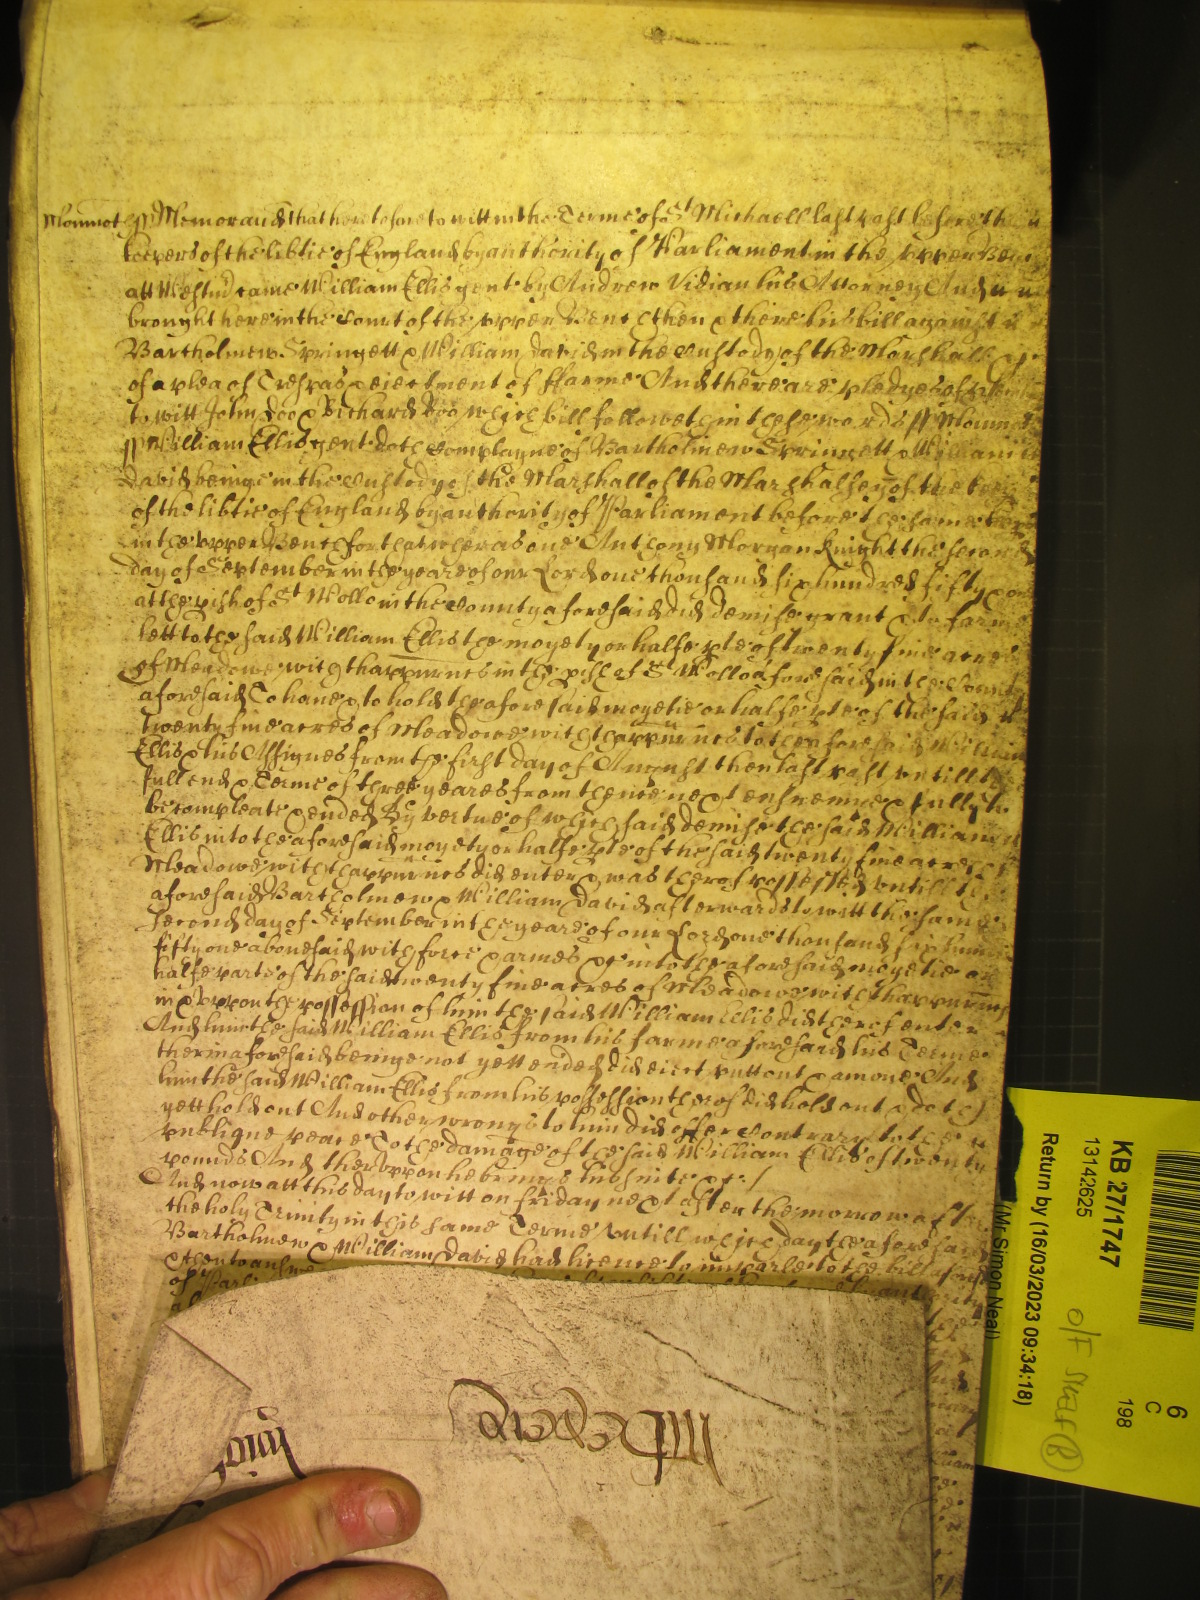 Monmot ss Memorand that heretofore to witt in the Terme of St Michaell last past before the
keepers of the libtie of England by authority of Parliament in the upper Benc
att Westm came William Ellis gent by Andrew Vidian his Attorney And
brought here in the Court of the upper Bench then & there his bill against
Bartholmew Springett & William David in the Custody of the Marshall &c
of a plea of Trespas & eiectment of ffarme And there are pledges of
to witt John Doo & Richard Roo which bill followeth in these words ss Monmot
ss William Ellis gent doth Complayne of Bartholmew Springett & William
David beinge in the Custody of the Marshall of the Marshalsey of the
of the libtie of England by authority of Parliament before the same
in the upper Bench for that wheras one Anthony Morgan knight the second
day of September in the yeare of our Lord one thousand six hundred fifty one
at the pish of St Wollo in the County aforesaid did demise grant & to farme
lett to the said William Ellis the moyety or halfe pte of twenty fiue acres
of Meadowe with thappurnces in the pish of St Wollo aforesaid in the County
aforesaid To haue & to hold the aforesaid moyetie or halfe pte of the said
twenty fiue acres of Meadowe with thappurnces to the aforesaid William
Ellis & his Assignes from the first day of August then last past untill the
full end & Terme of three yeares from thence next ensueinge & fully to
be compleate & ended By vertue of which said demise the said William
Ellis into the aforesaid moyety or halfe pte of the said twenty fiue acres of
Meadowe with thappurnces did enter & was therof possessed untill the
aforesaid Bartholmew & William David afterwards to witt the same
second day of September in the yeare of our Lord one thousand six hun
fifty one abouesaid with force & armes &c into the aforesaid moyetie or
halfe parte of the said twenty fiue acres of Meadowe with thappurnces
in & uppon the possession of him the said William Ellis did therof enter
And him the said William Ellis from his farme aforesaid his Terme
therin aforesaid beinge not yett ended did eiect putt out & amoue And
him the said William Ellis from his possession therof did hold out & doth
yett hold out And other wrongs to him did offer Contrary to the
publique peace To the damage of the said William Ellis of twenty
pounds And theruppon he brings his suite &c /
And now att this day to witt on Friday next after the morrow after
the holy Trinity in this same Terme untill which day the aforesaid
Bartholmew & William David had licence to imparle to the bill afores
& then to answe
of Parli
KB 27/1747
13142625
Return by (16/03/2023 09:34:18)
(Mr Simon Neal)
6
C
198
O/F